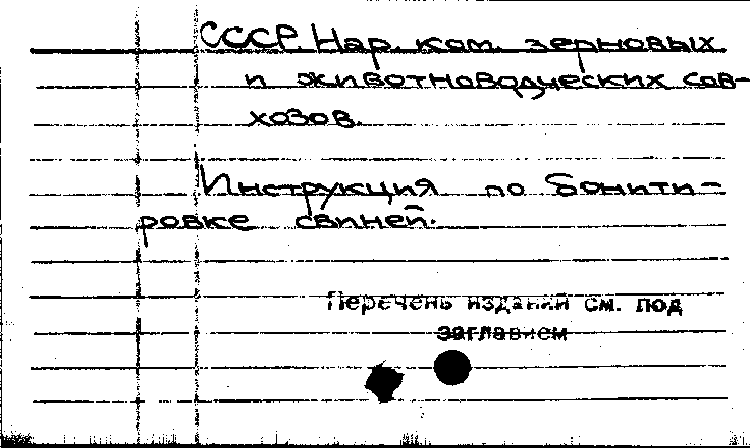 СССР. Нар. ком. зерновых
и животноводческих сов-
хозов.
Инструкция по бонити-
ровке свиней.
Перечень изданий см. под
заглавием